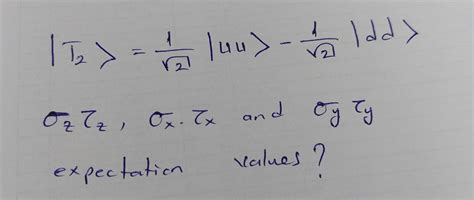 |T₂> = 1/√2 |uu> - 1/√2 |dd>
σz τz, σx . τx and σy τy
expectation values?